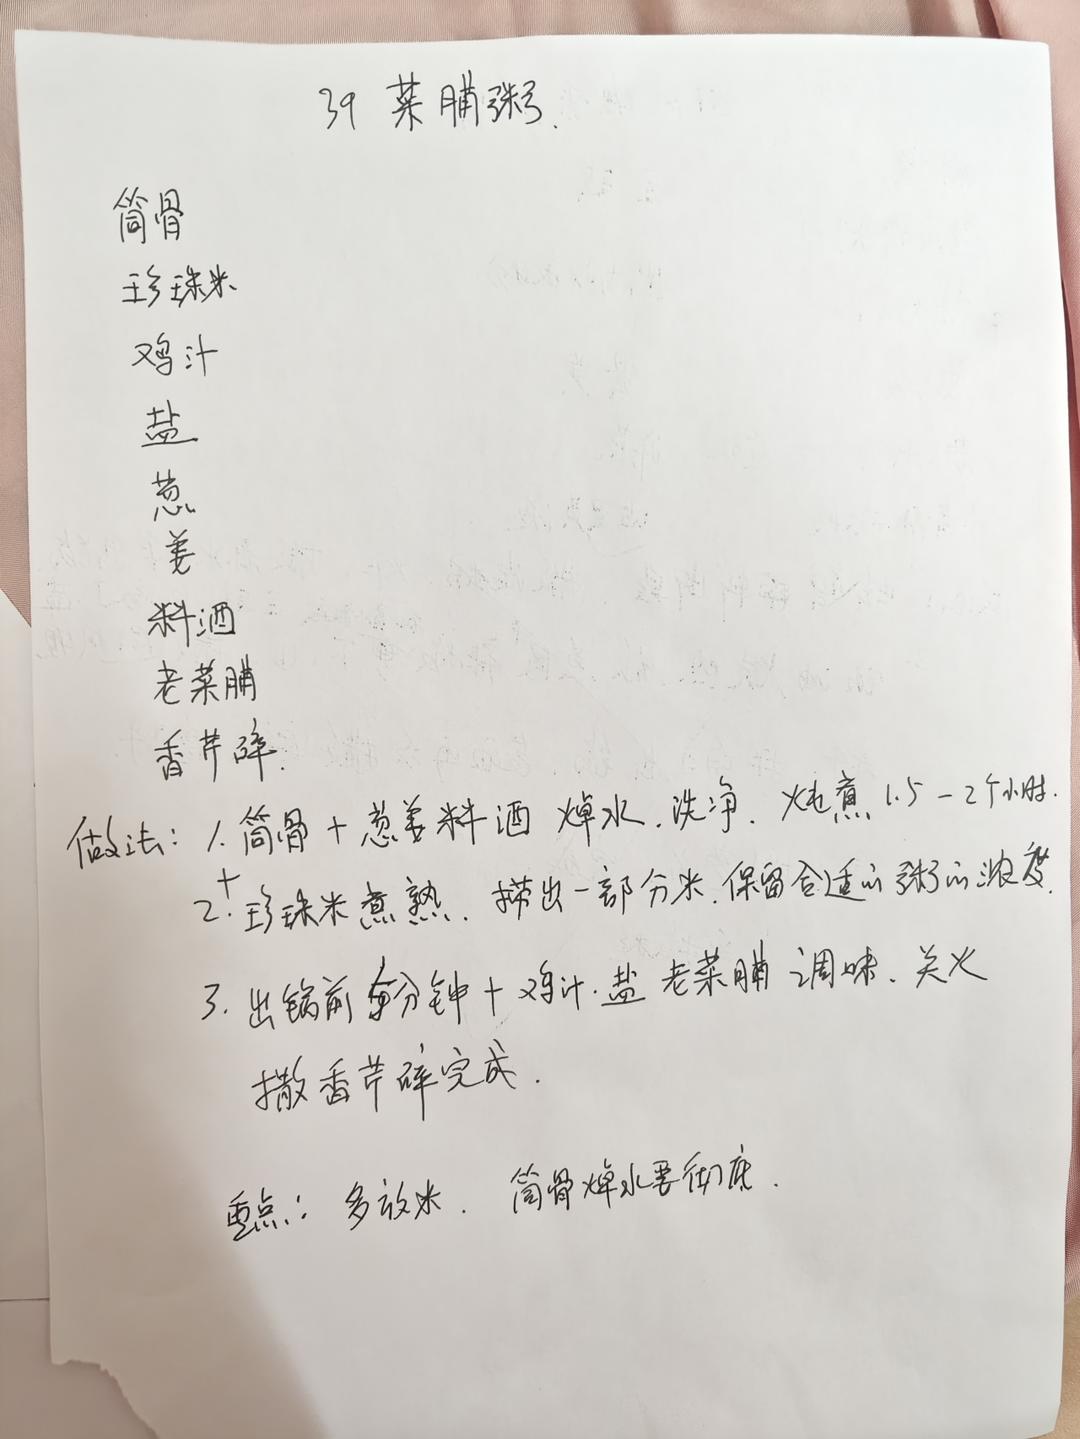 39 菜脯粥.
筒骨
珍珠米
鸡汁
盐
葱
姜
料酒
老菜脯
香芹碎.
做法: 1. 筒骨+葱姜料酒 焯水.洗净. 炖煮 1.5-2个小时.
2. +珍珠米煮熟. 捞出一部分米.保留合适的粥的浓度.
3. 出锅前 分钟+鸡汁.盐 老菜脯 调味. 关火
撒香芹碎完成.
重点: 多放米. 筒骨焯水要彻底.